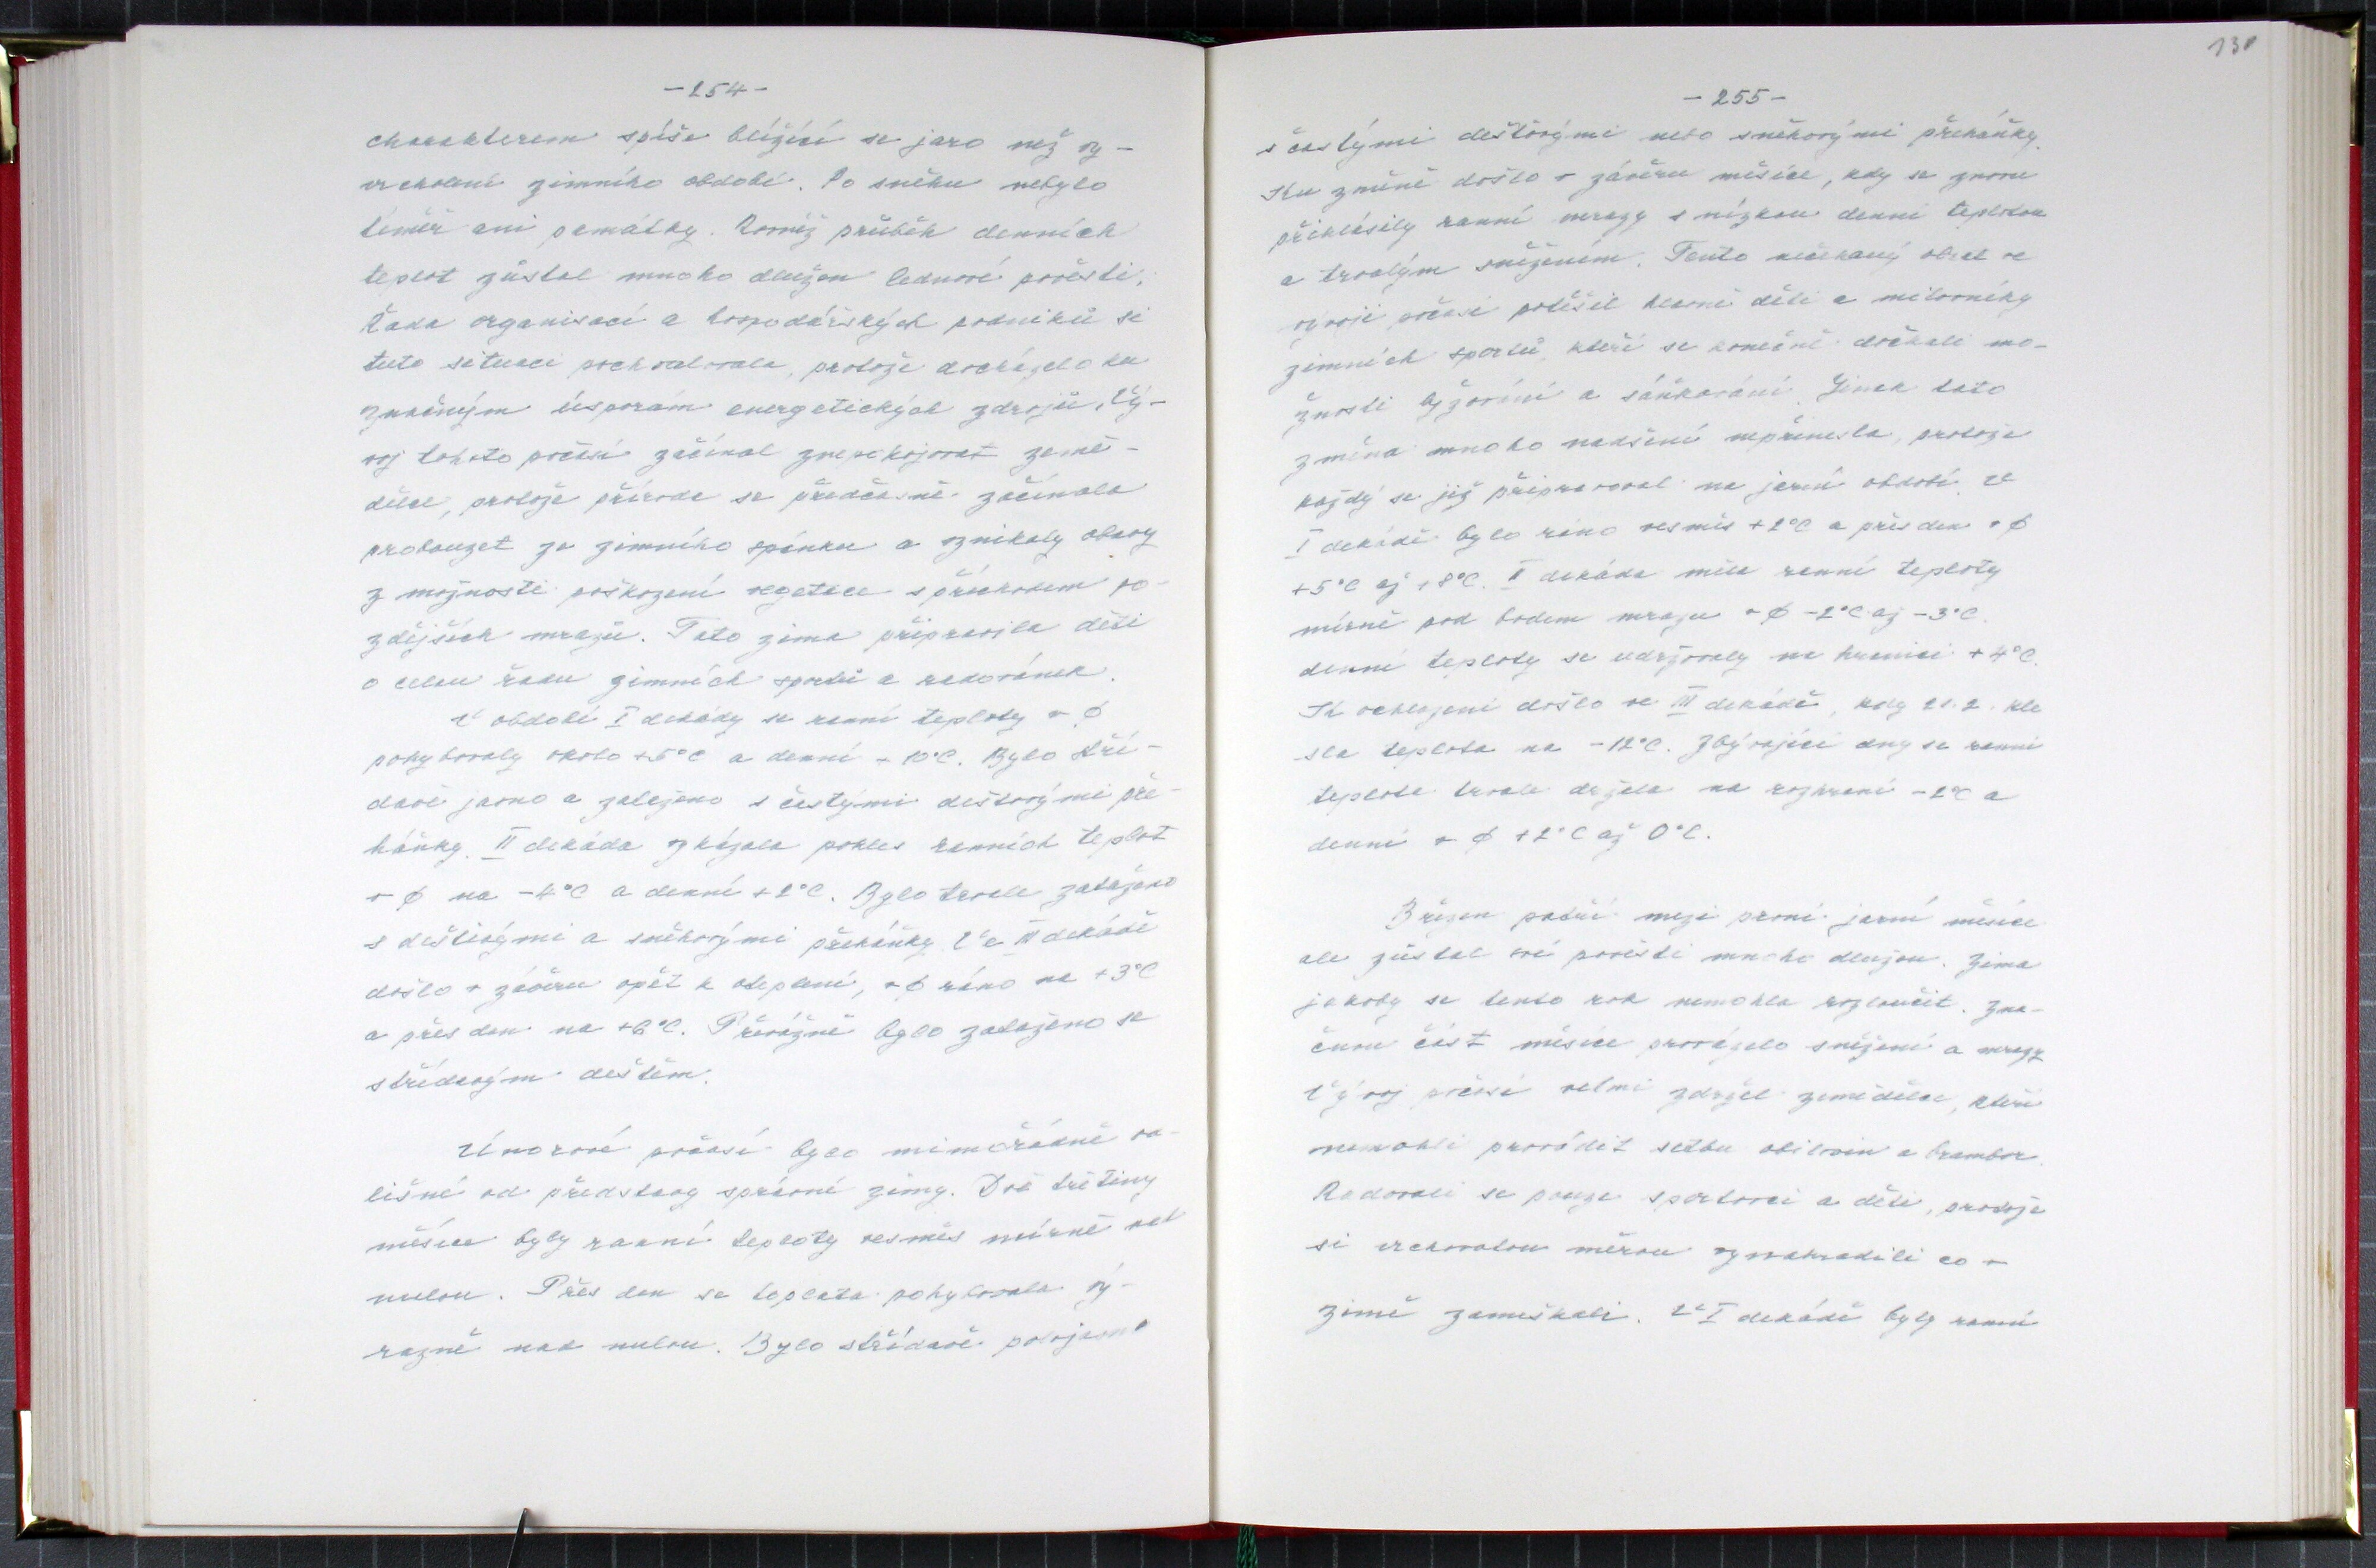 - 254 -
charakterem spíše blížící se jaro než vy-
vrcholení zimního období. Po sněhu nebylo
téměř ani památky. Rovněž průběh denních
teplot zůstal mnoho dlužen lednové pověsti.
Řada organisací a hospodářských podniků si
tuto situaci pochvalovala, protože docházelo ku
značným úsporám energetických zdrojů. Vý-
voj tohoto počasí začínal znepokojovat země-
dělce, protože příroda se předčasně začínala
probouzet ze zimního spánku a vznikaly obavy
z možnosti poškození vegetace s příchodem po-
zdějších mrazů. Tato zima připravila děti
o celou řadu zimních sportů a radovánek.
V období I dekády se ranní teploty v ø
pohybovaly okolo +5°C a denní + 10°C. Bylo stří-
davě jasno a zataženo s častými dešťovými pře-
háňky. II dekáda vykázala pokles ranních teplot
v ø na -4°C a denní +2°C. Bylo trvale zataženo
s dešťovými a sněhovými přeháňky. Ve III dekádě
došlo v závěru opět k oteplení, v ø ráno na +3°C
a přes den na +6°C. Převážně bylo zataženo se
střídavým deštěm.
Únorové počasí bylo mimořádně od-
lišné od představy správné zimy. Dvě třetiny
měsíce byly ranní teploty vesměs mírně nad
nulou. Přes den se teplota pohybovala vý-
razně nad nulou. Bylo střídavě polojasno
130
- 255 -
s častými dešťovými nebo sněhovými přeháňky.
Ku změně došlo v závěru měsíce, kdy se znovu
přihlásily ranní mrazy s nízkou denní teplotou
a trvalým sněžením. Tento nečekaný obrat ve
vývoji počasí potěšil hlavně děti a milovníky
zimních sportů, kteří se konečně dočkali mo-
žnosti lyžování a sáňkování. Jinak tato
změna mnoho nadšení nepřinesla, protože
každý se již připravoval na jarní období. V
I dekádě bylo ráno vesměs +2°C a přes den v ø
+5°C až +8°C. II dekáda měla ranní teploty
mírně pod bodem mrazu v ø -2°C až -3°C.
denní teploty se udržovaly na hranici +4°C.
K ochlazení došlo ve III dekádě, kdy 21.2. kle
sla teplota na -12°C. Zbývající dny se ranní
teplota trvale držela na rozhraní -2°C a
denní v ø +2°C až 0°C.
Březen patří mezi první jarní měsíce
ale zůstal své pověsti mnoho dlužen. Zima
jakoby se tento rok nemohla rozloučit. Zna-
čnou část měsíce provázelo sněžení a mrazy
Vývoj počasí velmi zdržel zemědělce, kteří
nemohli provádět setbu obilovin a brambor.
Radovali se pouze sportovci a děti, protože
si vrchovatou měrou vynahradili co v
zimě zameškali. V I dekádě byly ranní